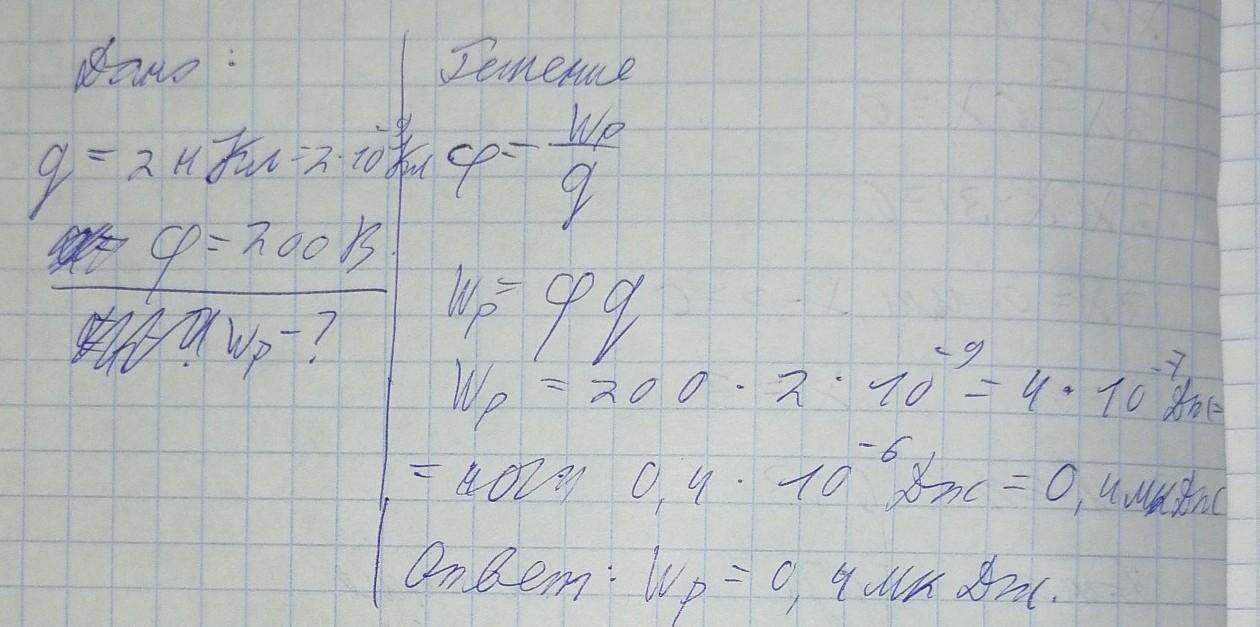 Дано:
q = 2 нКл = 2·10⁻⁹ Кл
φ = 200 В
Wp - ?
Решение
φ = Wp/q
Wp = φq
Wp = 200 · 2 · 10⁻⁹ = 4 · 10⁻⁷ Дж =
= 0,4 · 10⁻⁶ Дж = 0,4 мкДж
Ответ: Wp = 0,4 мкДж.